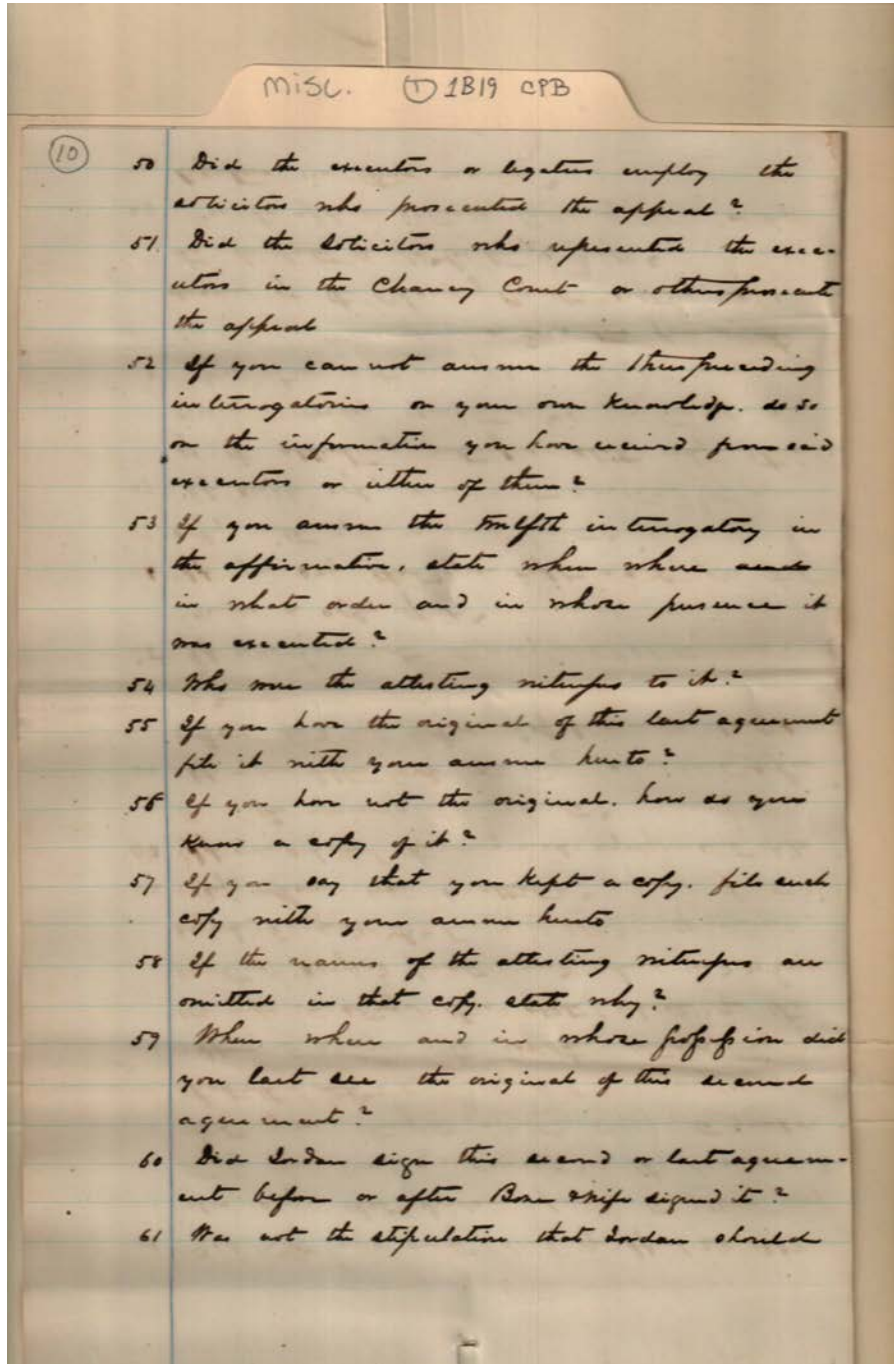 Misc. ① 1B19 CPB
10
50 Did the executors or legatees employ the
solicitors who prosecuted the appeal?
51 Did the Solicitors who represented the exec-
utors in the Chancy Court or others prosecute
the appeal
52 If you can not answer the three preceding
interrogatories on your own knowledge. do so
on the information you have received from said
executors or either of them?
53 If you answer the twelfth interrogatory in
the affirmative, state when where and
in what order and in whose presence it
was executed?
54 Who were the attesting witnesses to it?
55 If you have the original of this last agreement
file it with your answer hereto?
56 If you have not the original. how do you
know a copy of it?
57 If you say that you kept a copy. file such
copy with your answer hereto
58 If the names of the attesting witnesses are
omitted in that copy. state why?
59 When where and in whose possession did
you last see the original of this second
agreement?
60 Did Jordan sign this second or last agreem-
ent before or after Bone & wife signed it?
61 Was not the stipulation that Jordan should